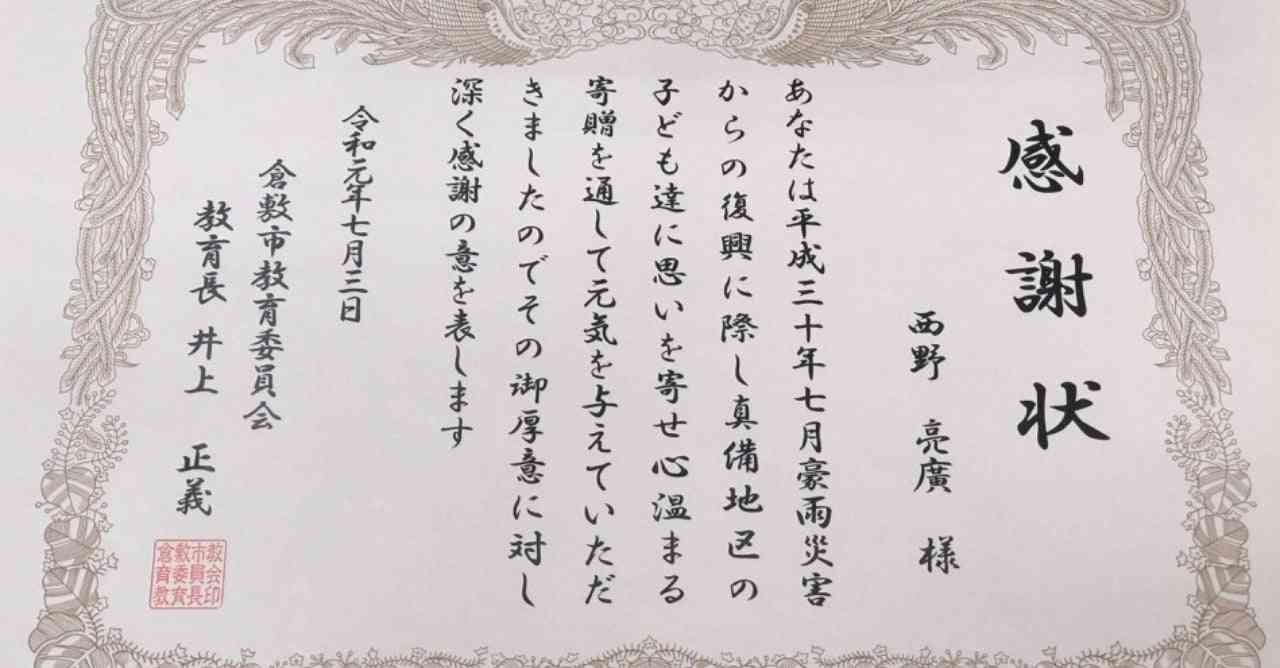 感謝状
西野 亮廣 様
あなたは平成三十年七月豪雨災害
からの復興に際し真備地区の
子ども達に思いを寄せ心温まる
寄贈を通して元気を与えていただ
きましたのでその御厚意に対し
深く感謝の意を表します
令和元年七月三日
倉敷市教育委員会
教育長 井上 正義
倉敷市教
育委員会
教育長印